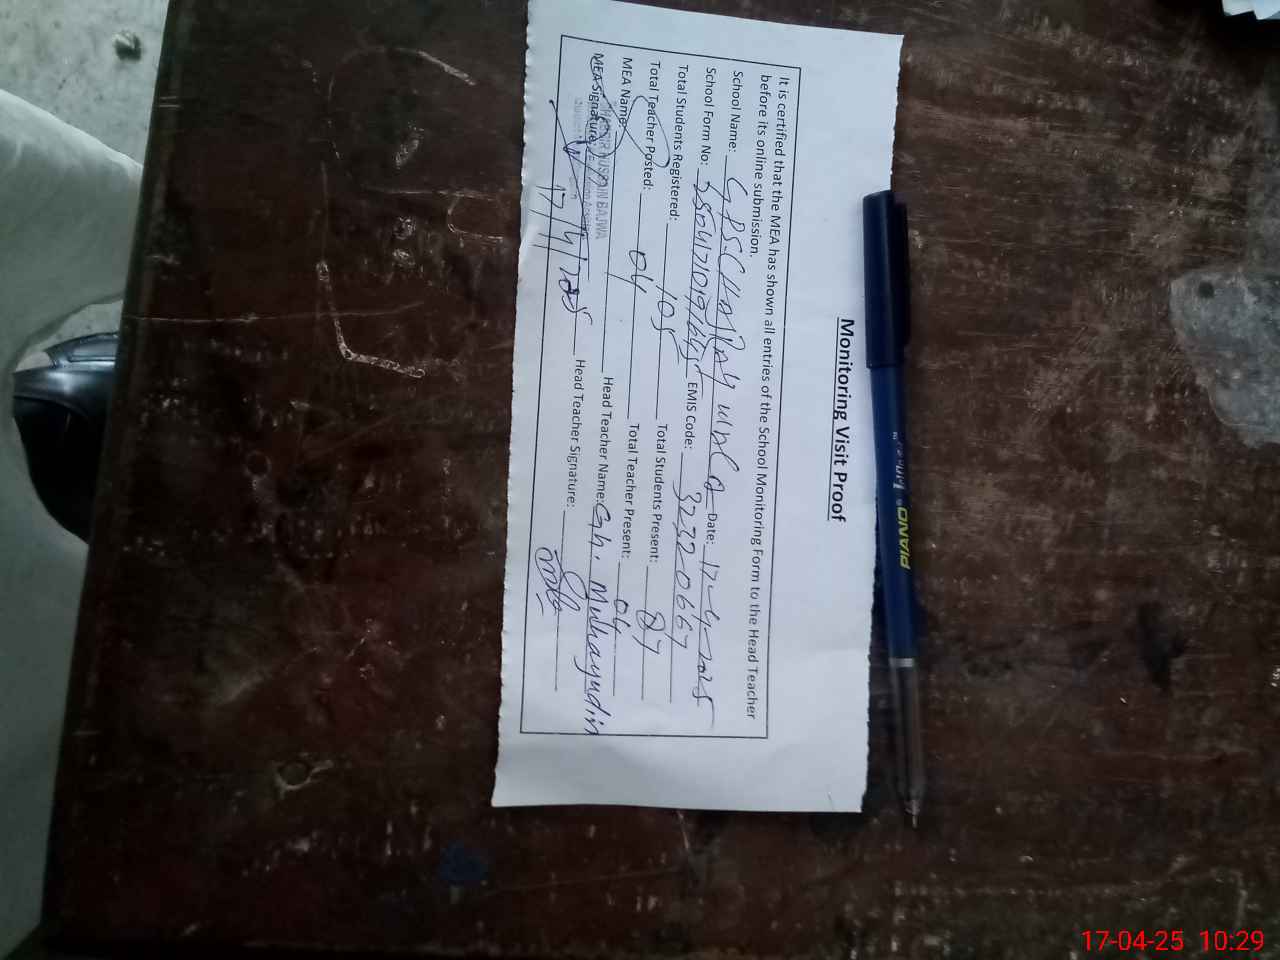 Monitoring Visit Proof
It is certified that the MEA has shown all entries of the School Monitoring Form to the Head Teacher
before its online submission.
School Name: GPS Date: 17-4-2025
School Form No: EMIS Code: 32320667
Total Students Registered: 105 Total Students Present: 87
Total Teacher Posted: 04 Total Teacher Present: 04
MEA Name: Head Teacher Name: Gh. Muhayudin
HUSSAIN BAJWA
MEA Signature: Head Teacher Signature:
17/4/2025
PIANO
17-04-25 10:29